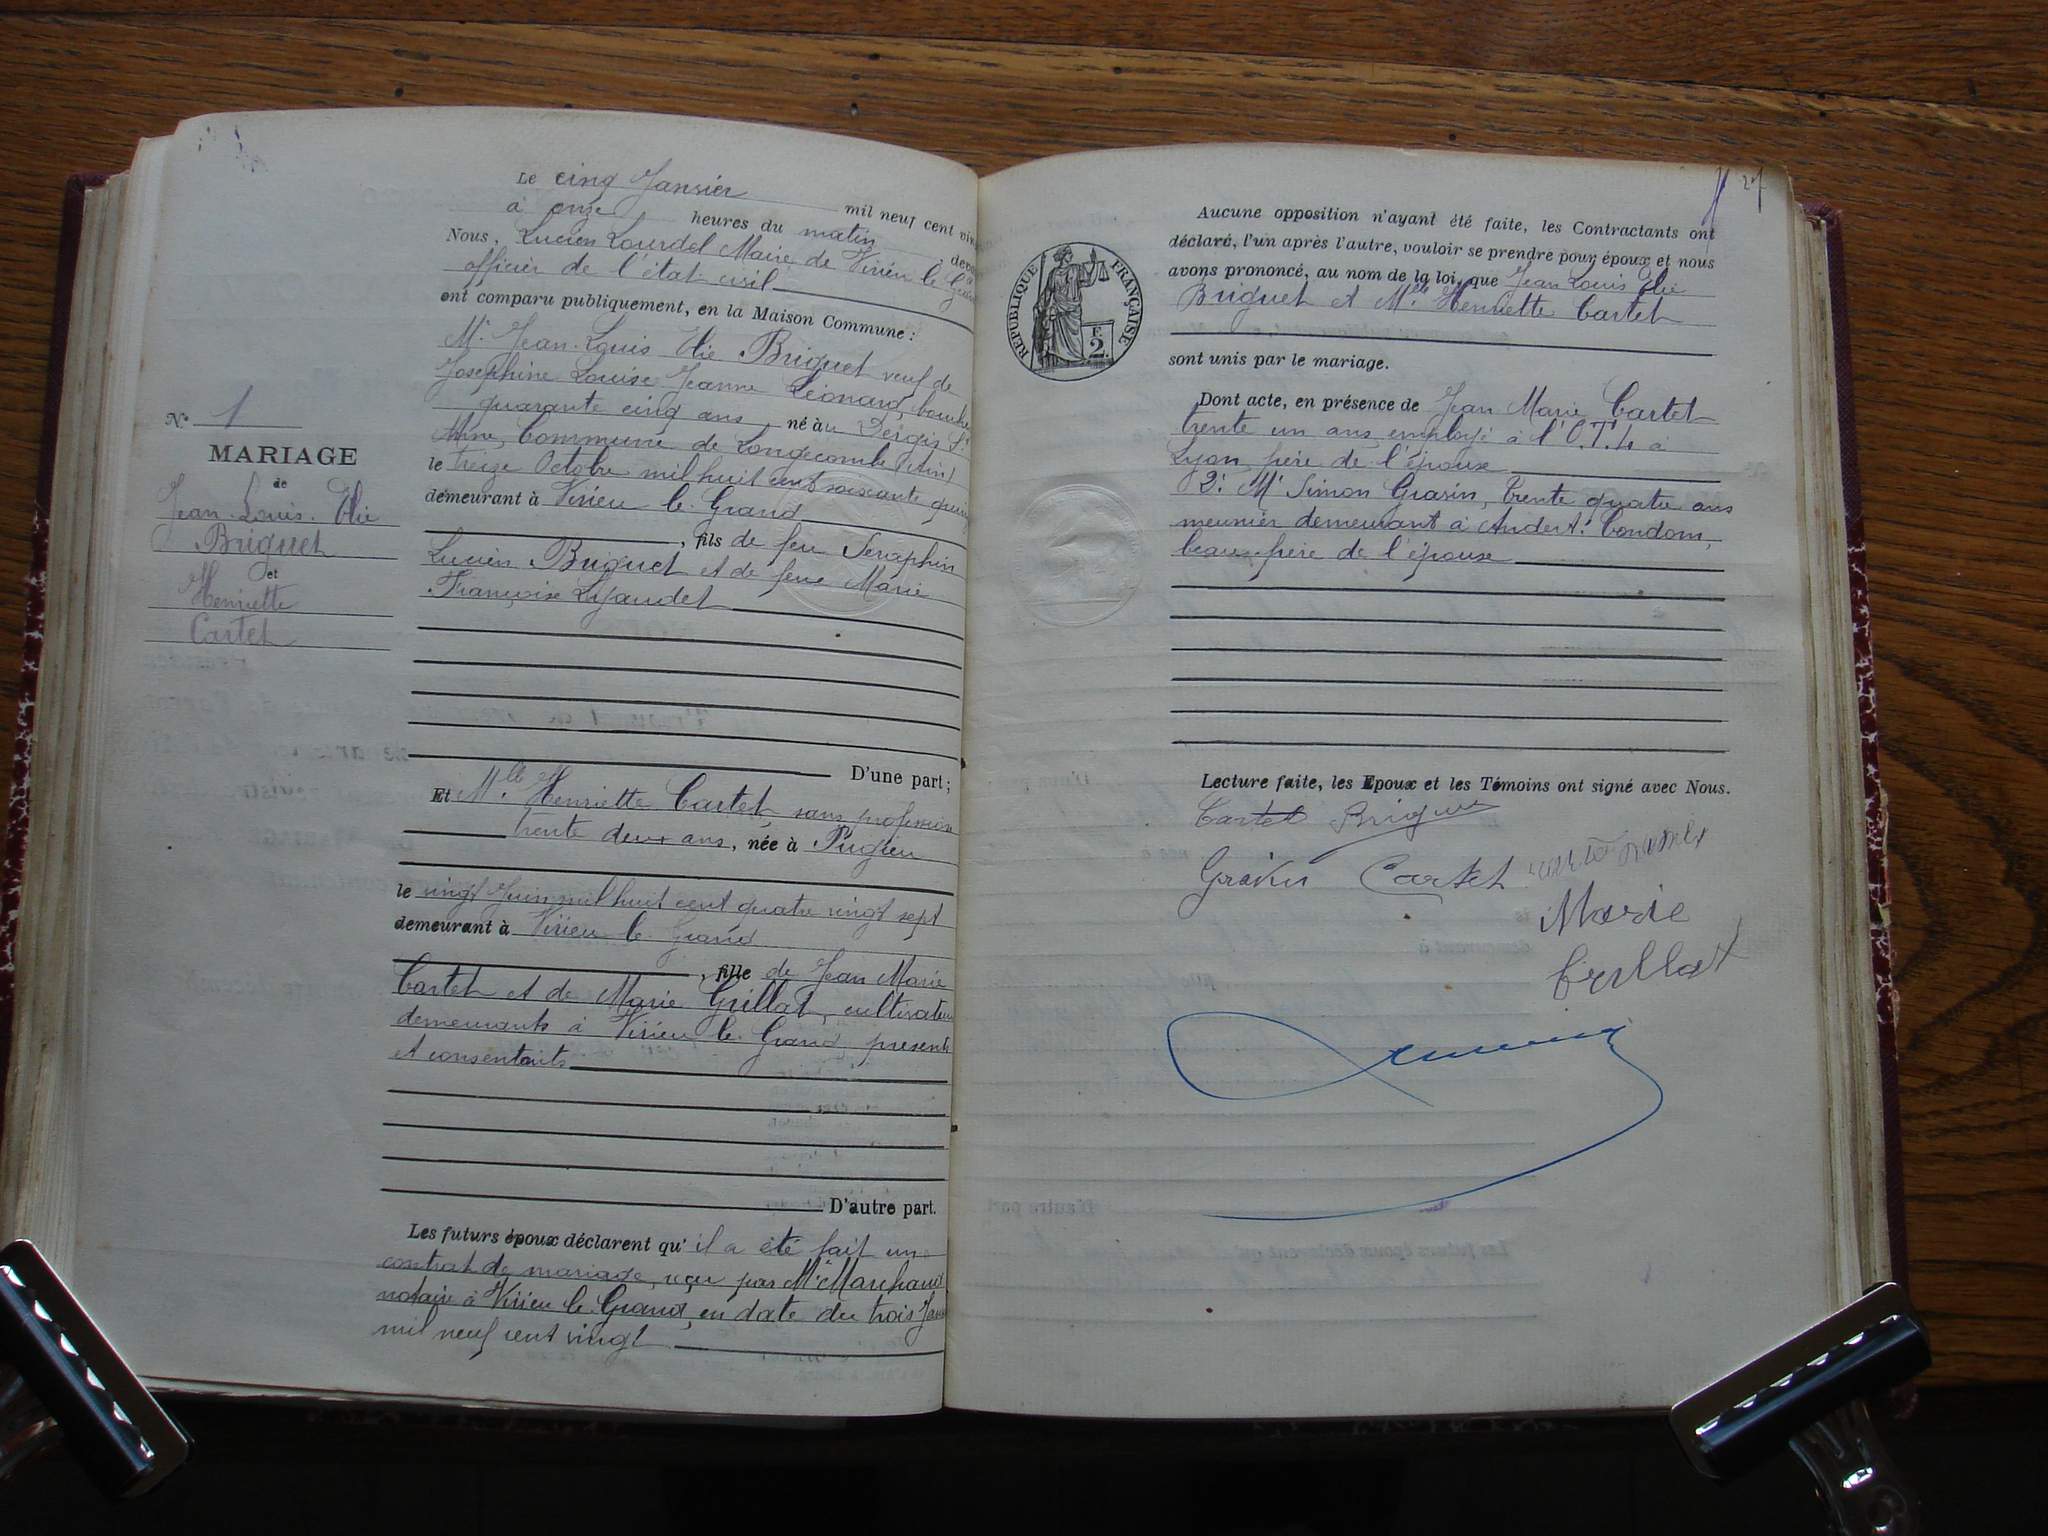 Le cinq Janvier mil neuf cent vin
à onze heures du matin, deva
Nous, Lucien Lourdel Maire de Virieu le Gra
officier de l'état civil
ont comparu publiquement, en la Maison Commune :
Mr Jean-Louis Elie Briguet veuf de
Joséphine Louise Jeanne Léonard, bouche
quarante cinq ans, né au
Commune de Longecombe (Ain)
le treize Octobre mil huit cent soixante quin
demeurant à Virieu le Grand
, fils de feu Seraphin
Lucien Briguet et de feue Marie
Françoise Lyaudet
D'une part;
N° 1
MARIAGE
de
Jean-Louis-Elie
Briguet
et
Henriette
Cartet
Et Mlle Henriette Cartet, sans profession
trente deux ans, née à Pugieu
le vingt Juin mil huit cent quatre vingt sept
demeurant à Virieu le Grand
, fille de Jean Marie
Cartet et de Marie Grillat, cultivateurs
demeurants à Virieu le Grand, presents
et consentants
D'autre part.
Les futurs époux déclarent qu'il a été fait un
contrat de mariage, reçu par Me Marchand
notaire à Virieu le Grand, en date du trois Janv
mil neuf cent vingt
27
Aucune opposition n'ayant été faite, les Contractants ont
déclaré, l'un après l'autre, vouloir se prendre pour époux et nous
avons prononcé, au nom de la loi, que Jean Louis Elie
Briguet et Mlle Henriette Cartet
sont unis par le mariage.
RÉPUBLIQUE FRANÇAISE
F.
2.
Dont acte, en présence de Jean Marie Cartet
trente un ans, employé à l'O.T.L. à
Lyon, frère de l'épouse
2: Mr Simon Gravin, trente quatre ans
meunier demeurant à Andert-Condom,
beau-frère de l'épouse
Lecture faite, les Epoux et les Témoins ont signé avec Nous.
Cartet Briguet
Gravin Cartet
Marie
Grillat